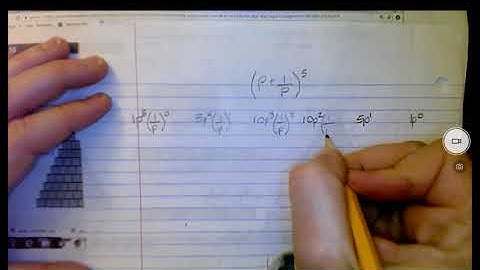 (p + 1/p)^5
1p^5(1/p)^0 5p^4(1/p)^1 10p^3(1/p)^2 10p^2(1/ 5p^1 p^0